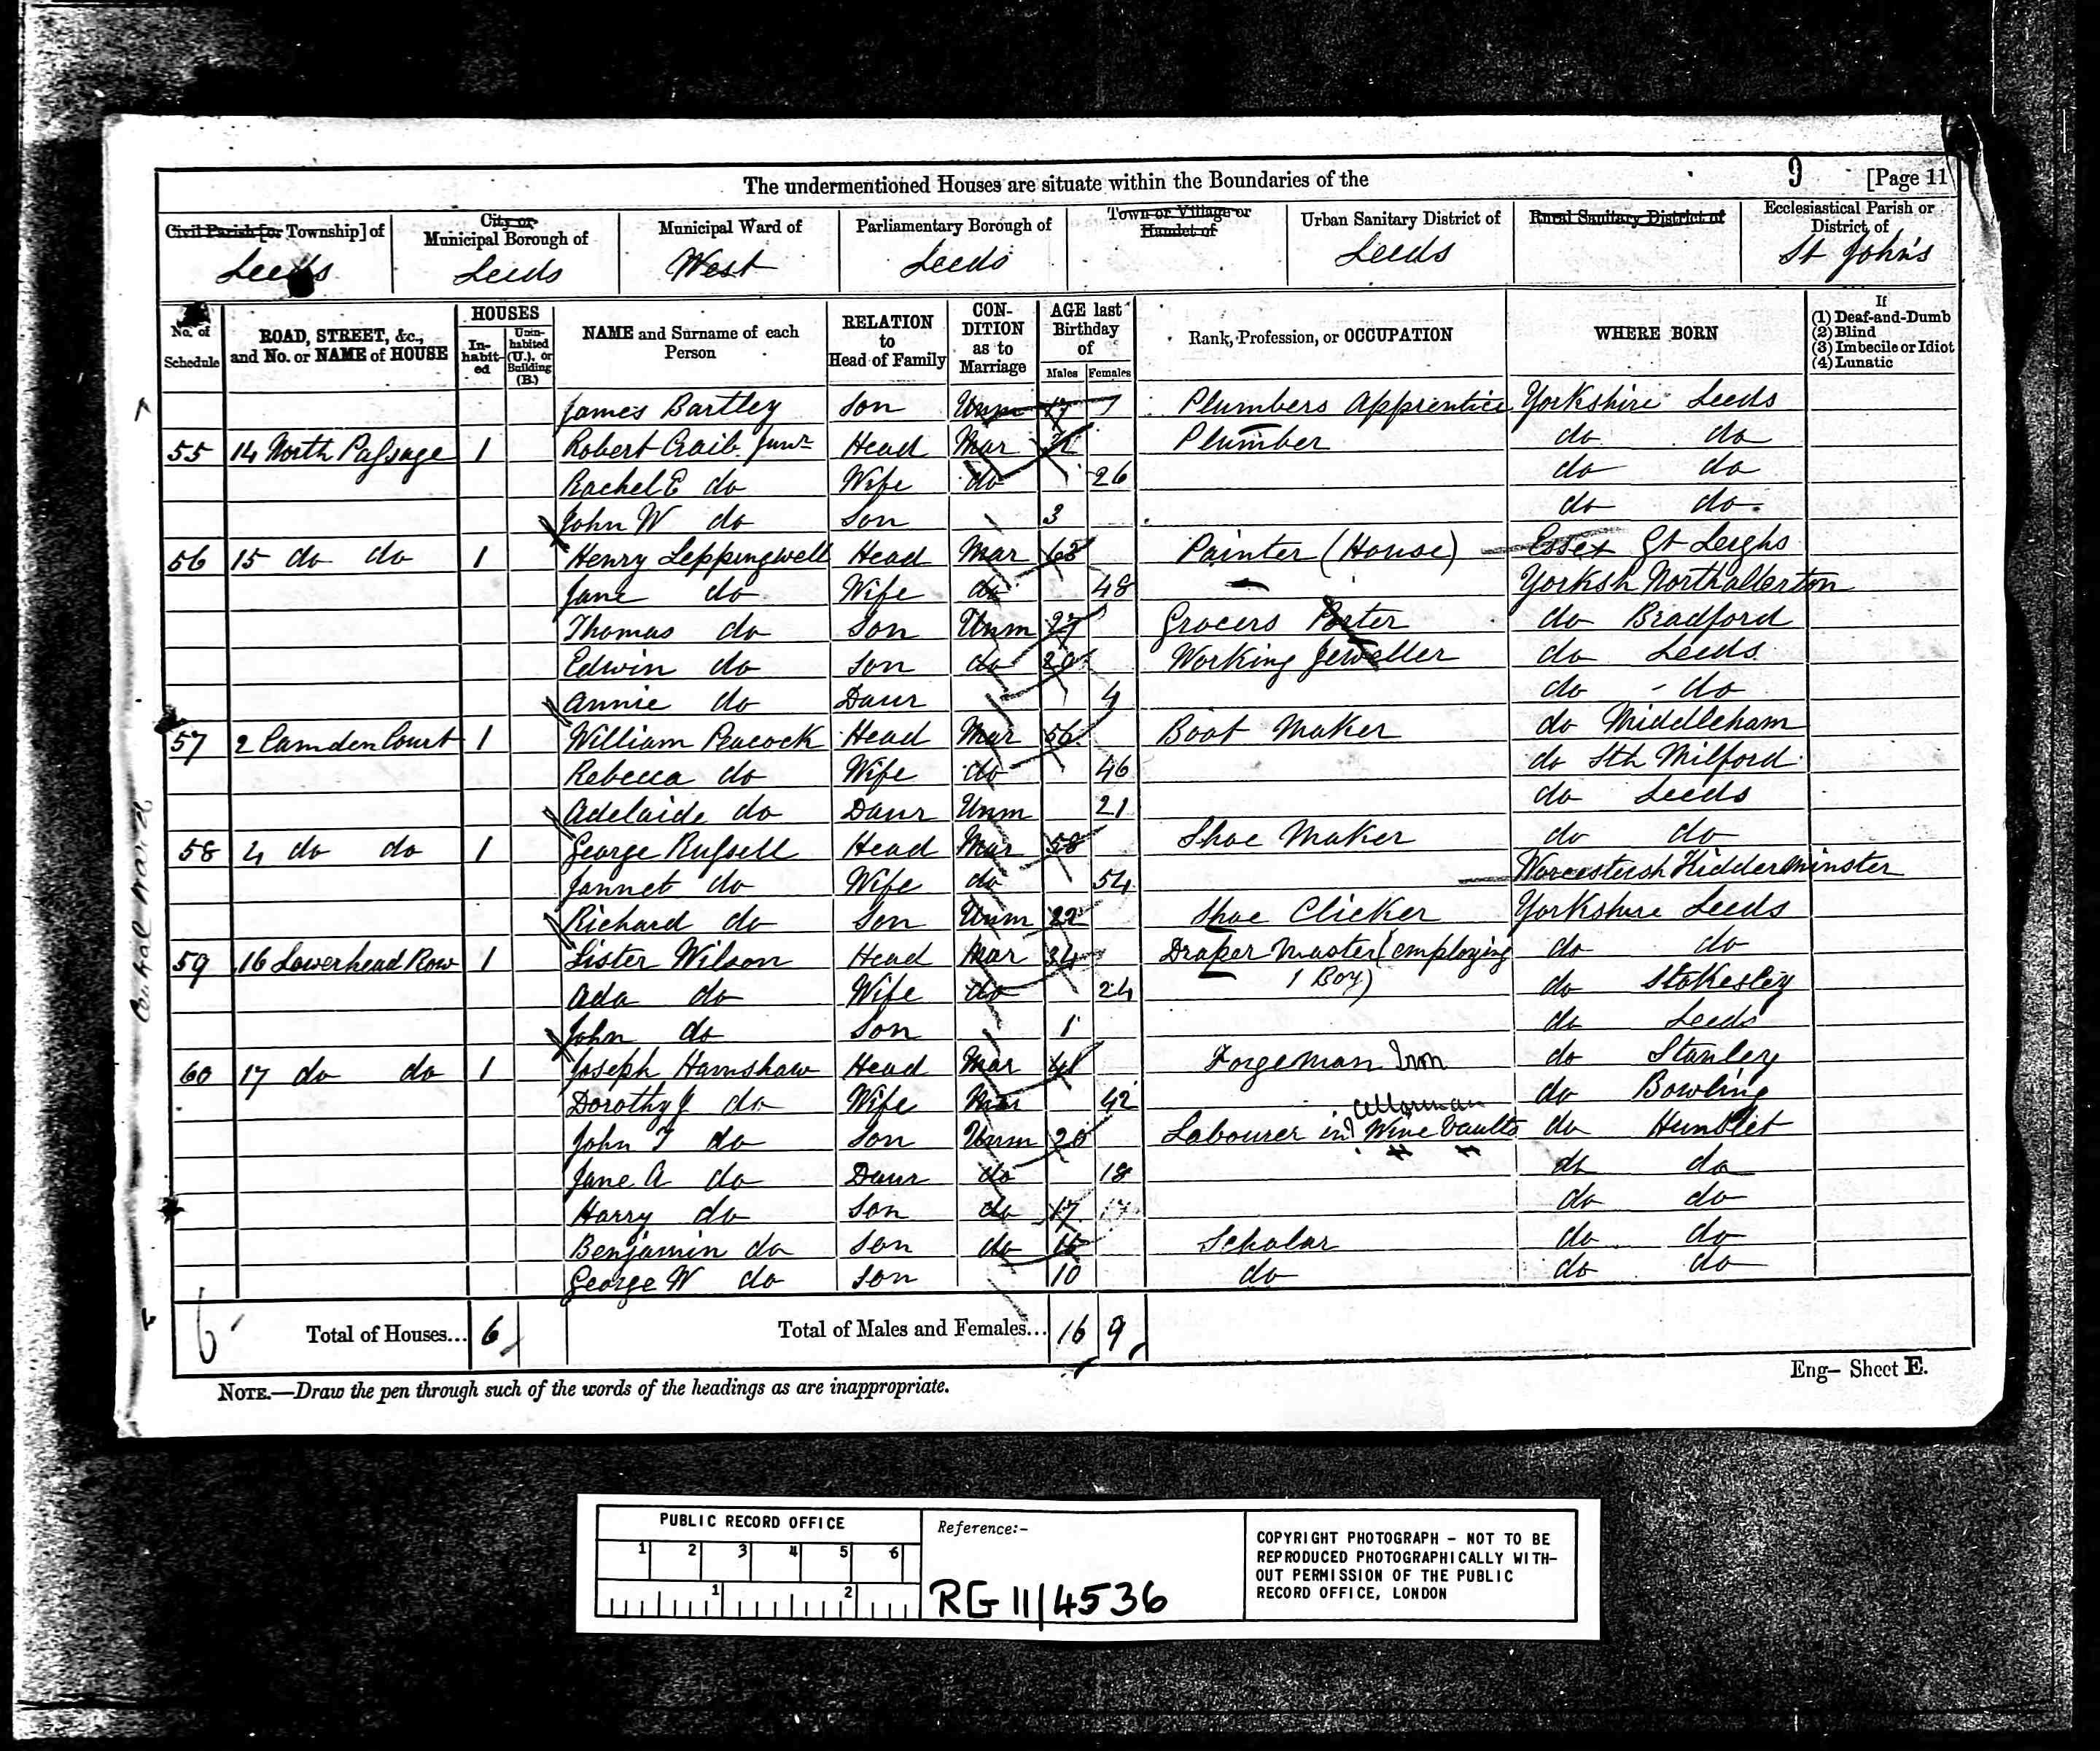 The undermentioned Houses are situate within the Boundaries of the 9 [Page 11
Civil Parish [or Township] of City or Municipal Borough of Municipal Ward of Parliamentary Borough of Town or Village or Hamlet of Urban Sanitary District of Rural Sanitary District of Ecclesiastical Parish or District of
Leeds Leeds West Leeds Leeds St John's
No. of Schedule ROAD, STREET, &c., and No. or NAME of HOUSE HOUSES In-habit-ed Unin-habited (U.), or Building (B.) NAME and Surname of each Person RELATION to Head of Family CON-DITION as to Marriage AGE last Birthday of Males Females Rank, Profession, or OCCUPATION WHERE BORN If (1) Deaf-and-Dumb (2) Blind (3) Imbecile or Idiot (4) Lunatic
James Bartley Son Unm 17 Plumbers Apprentice Yorkshire Leeds
55 14 North Passage 1 Robert Craib Junr Head Mar Plumber do do
Rachel E do Wife do 26 do do
John W do Son 3 do do
56 15 do do 1 Henry Leppingwell Head Mar 68 Painter (House) Essex Gt Leighs
Jane do Wife do 48 Yorksh Northallerton
Thomas do Son Unm 27 Grocers Porter do Bradford
Edwin do Son do 20 Working Jeweller do Leeds
Annie do Daur 4 do do
57 2 Camden Court 1 William Peacock Head Mar 56 Boot Maker do Middleham
Rebecca do Wife do 46 do Sth Milford
Adelaide do Daur Unm 21 do Leeds
58 4 do do 1 George Russell Head Mar 58 Shoe Maker do do
Jannet do Wife do 54 Worcestersh Kidderminster
Richard do Son Unm 22 Shoe Clicker Yorkshire Leeds
59 16 Lowerhead Row 1 Lister Wilson Head Mar 34 Draper Master (employing do do
Ada do Wife do 24 1 Boy) do Stokesley
John do Son 1 do Leeds
60 17 do do 1 Joseph Hamshaw Head Mar 41 Forgeman Iron do Stanley
Dorothy J do Wife Mar 42 do Bowling
Cellarman
John T do Son Unm 20 Labourer in Wine Vaults do Hunslet
Jane A do Daur do 18 do do
Harry do Son do 17 17 do do
Benjamin do Son do 15 Scholar do do
George W do Son 10 do do do
6 Total of Houses... 6 Total of Males and Females... 16 9
Eng— Sheet E.
NOTE.—Draw the pen through such of the words of the headings as are inappropriate.
Central Ward
PUBLIC RECORD OFFICE
1 2 3 4 5 6
1 2
Reference:-
RG 11/4536
COPYRIGHT PHOTOGRAPH - NOT TO BE
REPRODUCED PHOTOGRAPHICALLY WITH-
OUT PERMISSION OF THE PUBLIC
RECORD OFFICE, LONDON